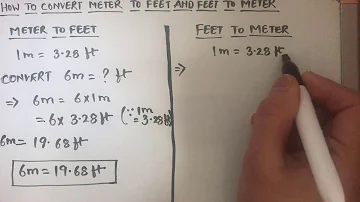 HOW TO CONVERT METER TO FEET AND FEET TO METER
METER TO FEET
1m = 3.28 ft
CONVERT 6m = ? ft
⇒ 6m = 6 x 1m
= 6 x 3.28 ft (∵ 1m = 3.28 ft)
6m = 19.68 ft
6m = 19.68 ft
FEET TO METER
1m = 3.28 ft
⇒